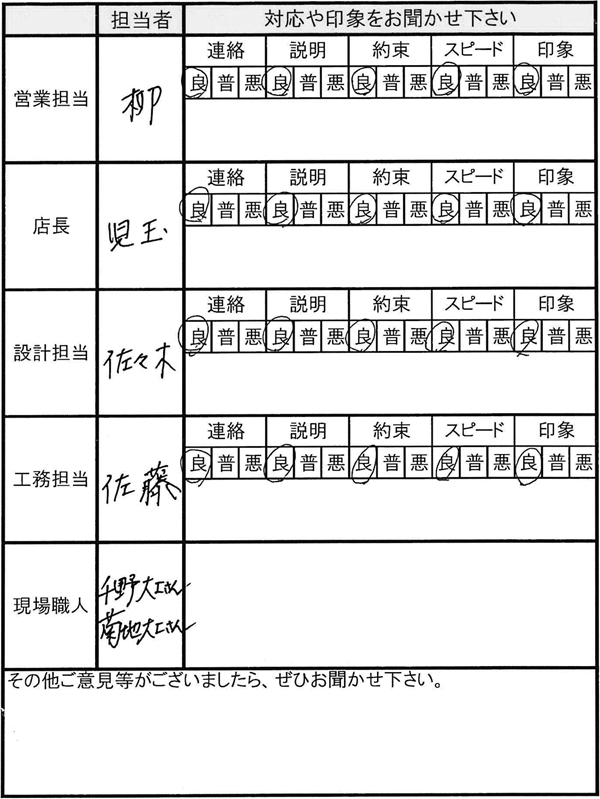 担当者 対応や印象をお聞かせ下さい
営業担当 柳
連絡 説明 約束 スピード 印象
良 普 悪 良 普 悪 良 普 悪 良 普 悪 良 普 悪
店長 児玉
連絡 説明 約束 スピード 印象
良 普 悪 良 普 悪 良 普 悪 良 普 悪 良 普 悪
設計担当 佐々木
連絡 説明 約束 スピード 印象
良 普 悪 良 普 悪 良 普 悪 良 普 悪 良 普 悪
工務担当 佐藤
連絡 説明 約束 スピード 印象
良 普 悪 良 普 悪 良 普 悪 良 普 悪 良 普 悪
現場職人 千野大工さん
菊地大工さん
その他ご意見等がございましたら、ぜひお聞かせ下さい。